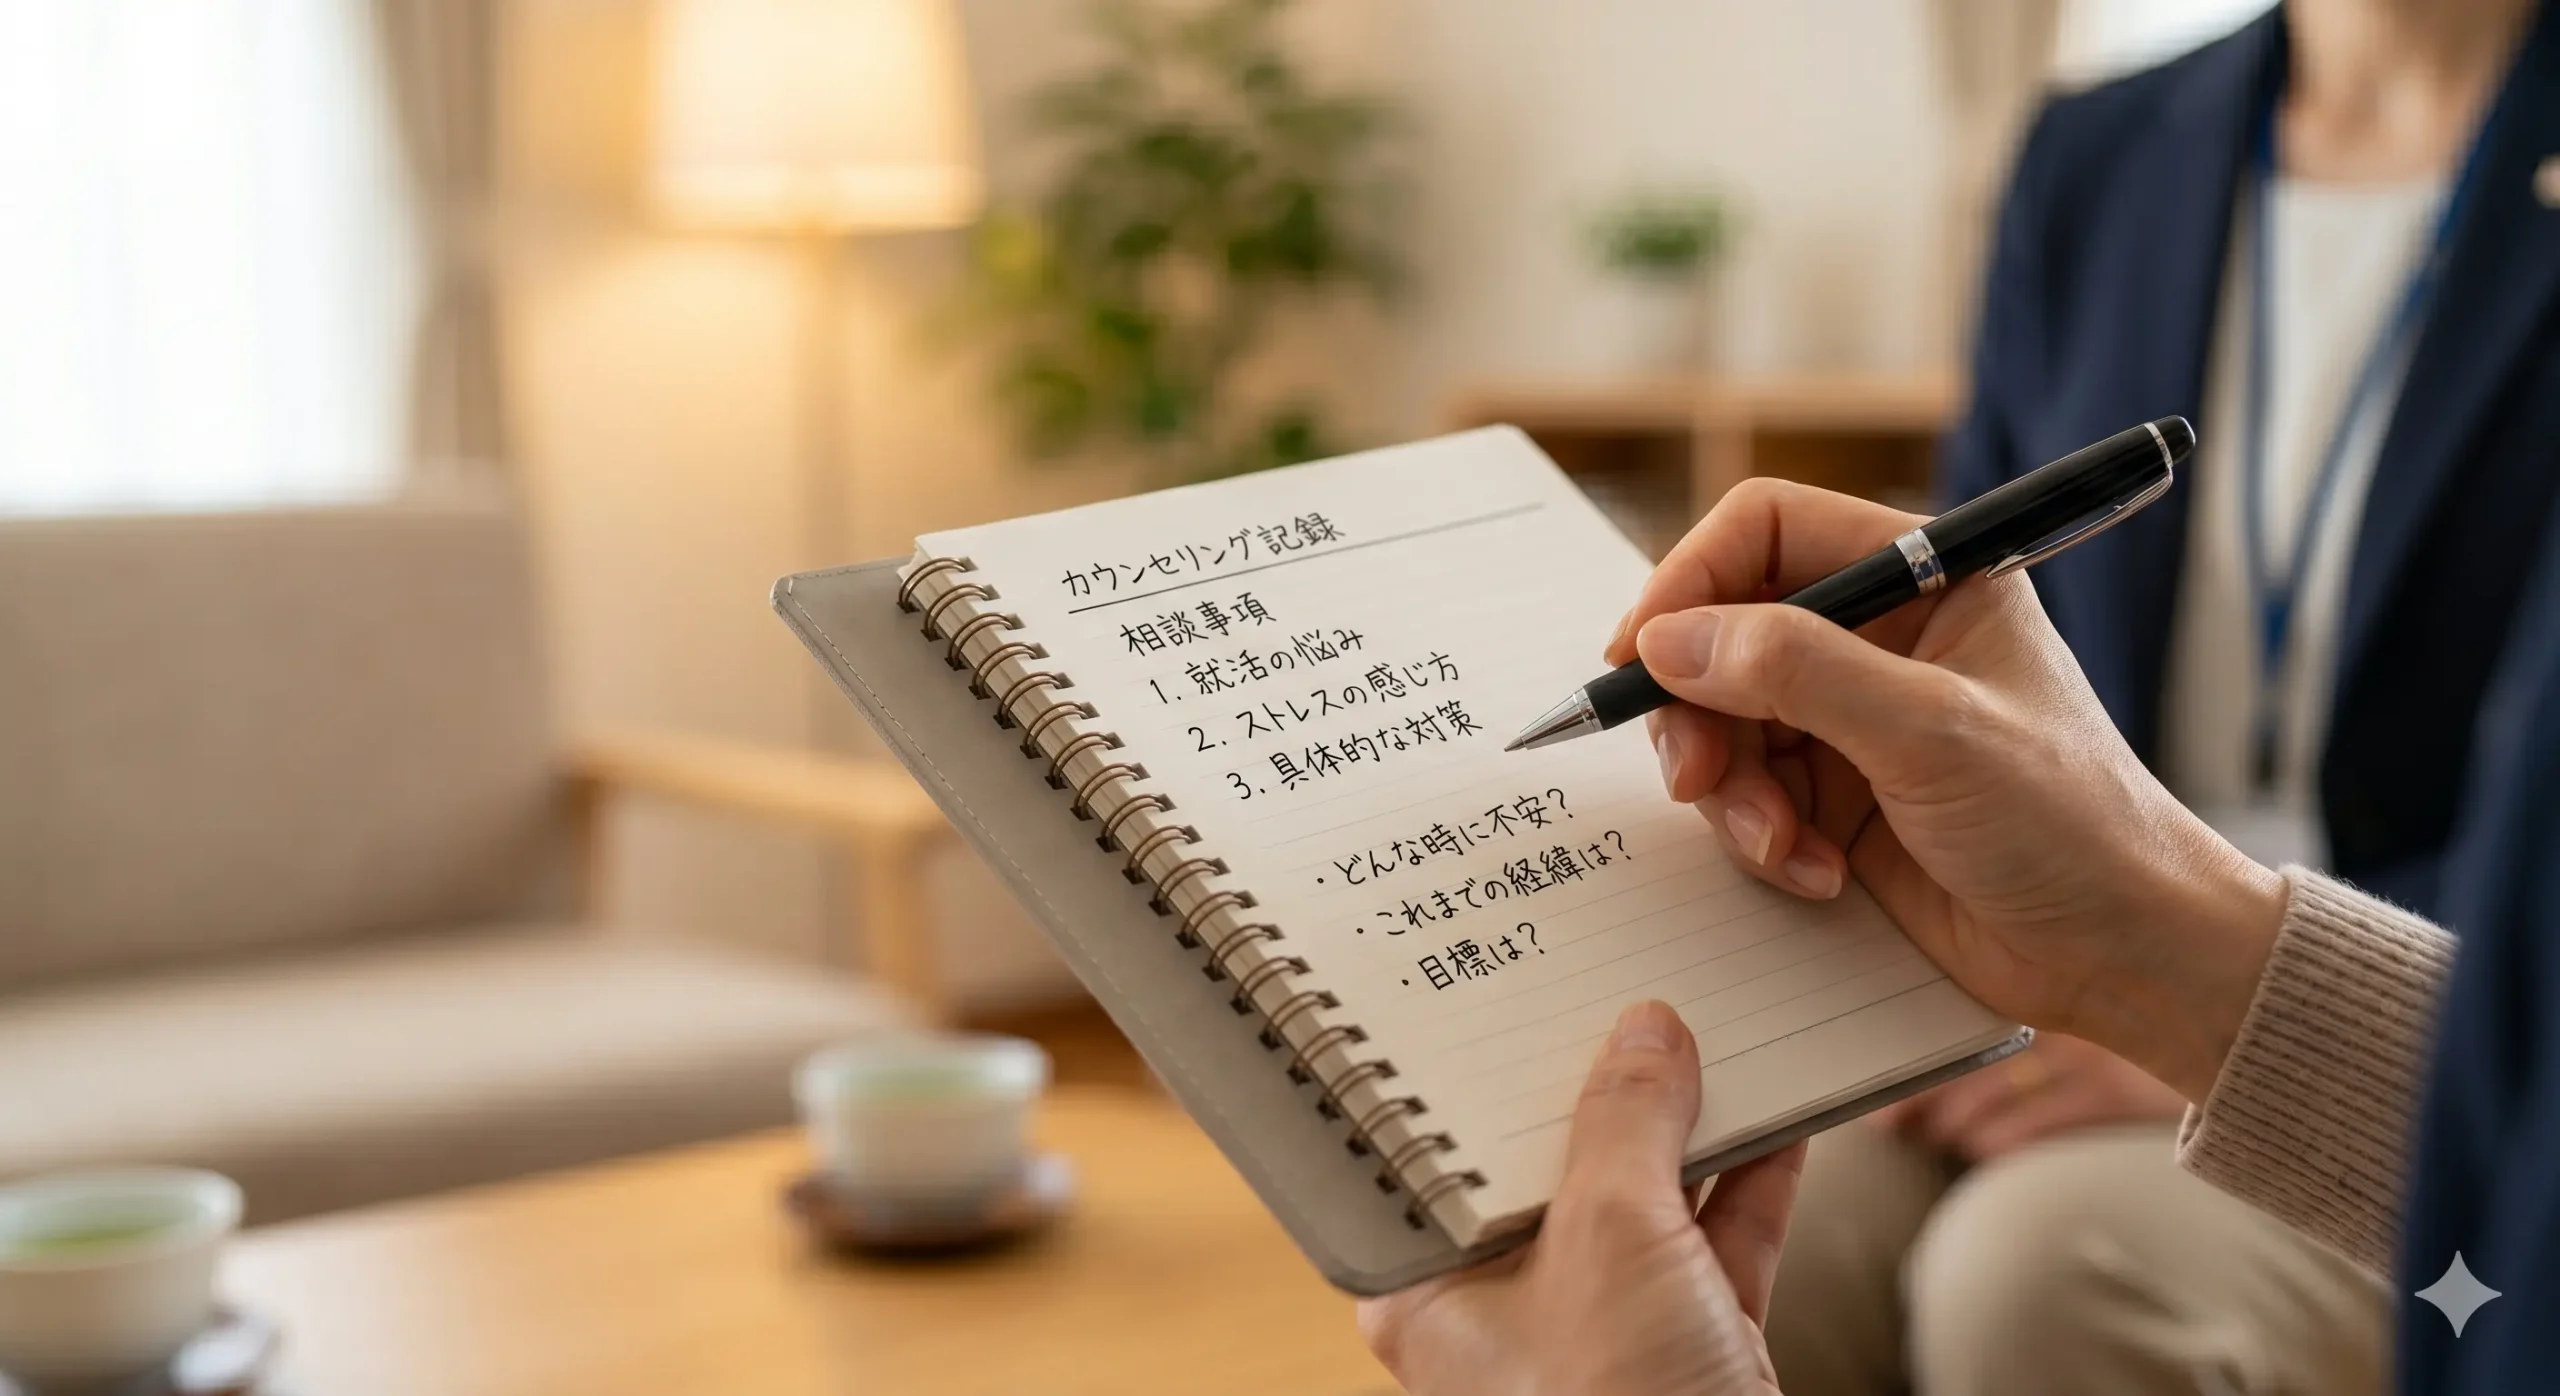 カウンセリング記録
相談事項
1. 就活の悩み
2. ストレスの感じ方
3. 具体的な対策
・どんな時に不安?
・これまでの経緯は?
・目標は?